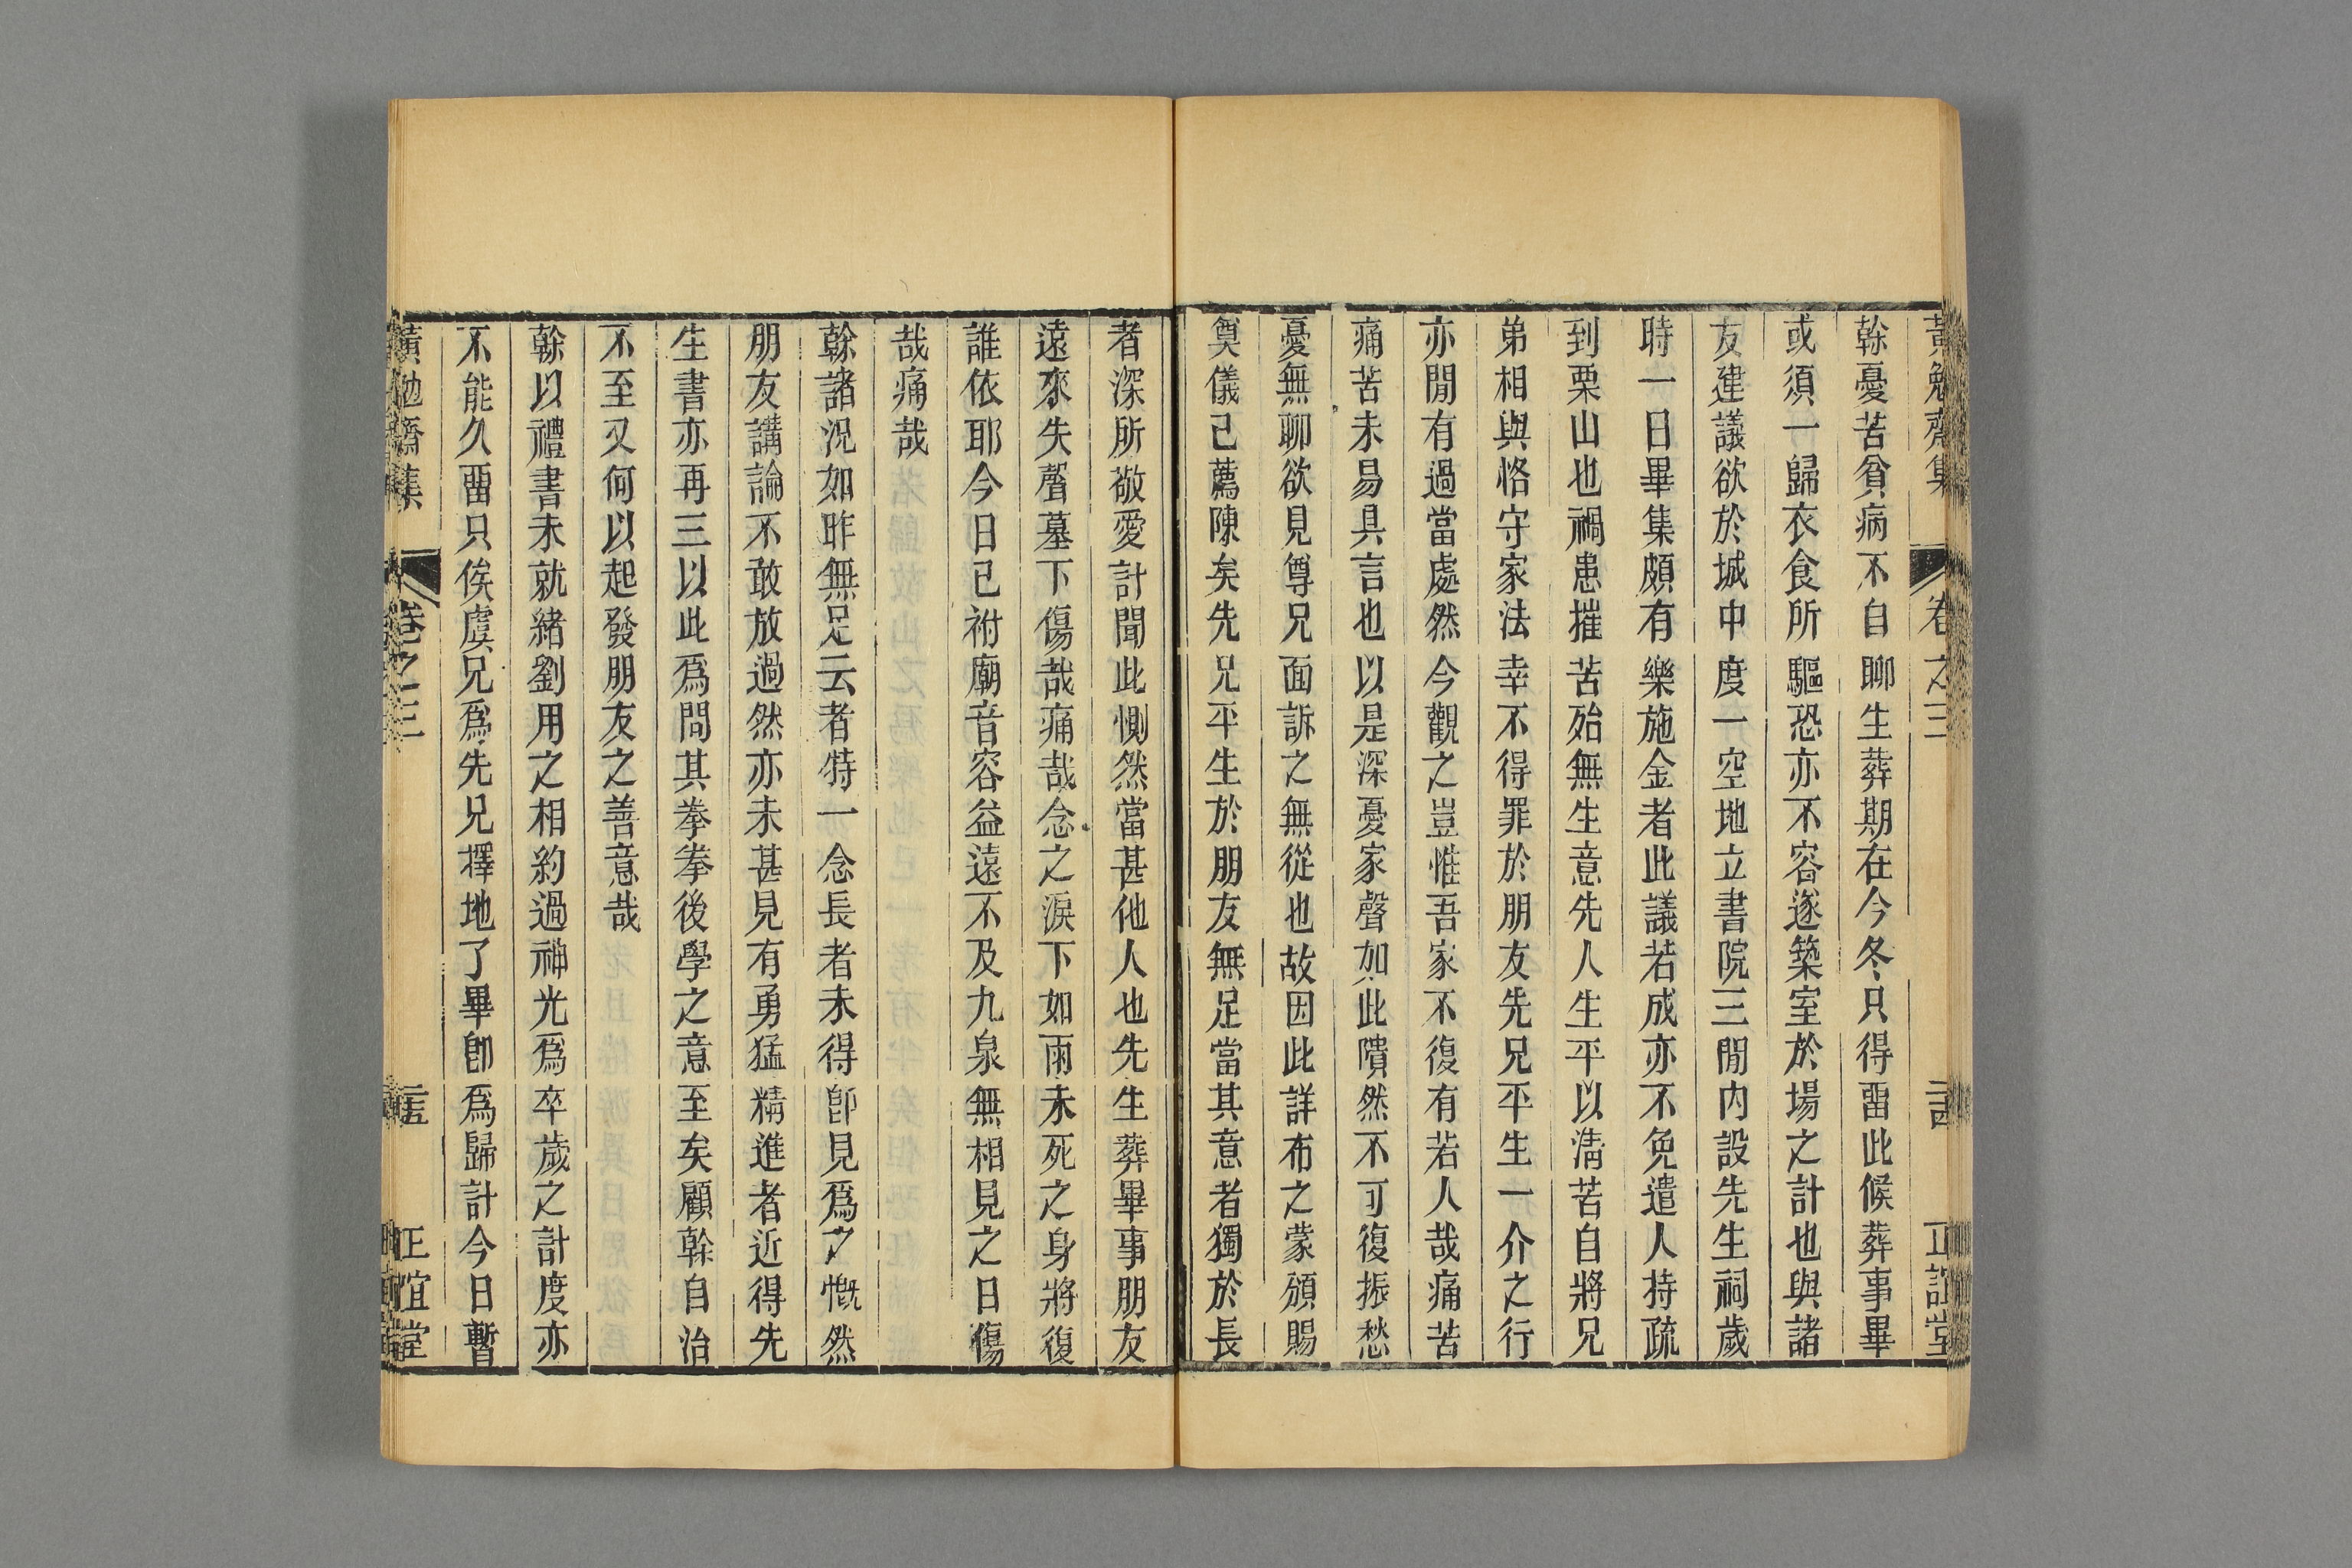 黃勉齋集 卷之三 二十四 正誼堂
榦憂苦貧病不自聊生葬期在今冬只得畱此候葬事畢
或須一歸衣食所驅恐亦不容遂築室於場之計也與諸
友建議欲於城中度一空地立書院三閒內設先生祠歲
時一日畢集頗有樂施金者此議若成亦不免遣人持疏
到栗山也禍患摧苦殆無生意先人生平以淸苦自將兄
弟相與恪守家法幸不得罪於朋友先兄平生一介之行
亦閒有過當處然今觀之豈惟吾家不復有若人哉痛苦
痛苦未易具言也以是深憂家聲如此隤然不可復振愁
憂無聊欲見尊兄面訴之無從也故因此詳布之蒙頒賜
奠儀已薦陳矣先兄平生於朋友無足當其意者獨於長
者深所敬愛計聞此惻然當甚他人也先生葬畢事朋友
遠來失聲墓下傷哉痛哉念之淚下如雨未死之身將復
誰依耶今日已祔廟音容益遠不及九泉無相見之日傷
哉痛哉
榦諸況如昨無足云者特一念長者未得卽見爲之慨然
朋友講論不敢放過然亦未甚見有勇猛精進者近得先
生書亦再三以此爲問其拳拳後學之意至矣顧榦自治
不至又何以起發朋友之善意哉
榦以禮書未就緒劉用之相約過神光爲卒歲之計度亦
不能久畱只俟虞兄爲先兄擇地了畢卽爲歸計今日暫
黃勉齋集 卷之三 二十五 正誼堂